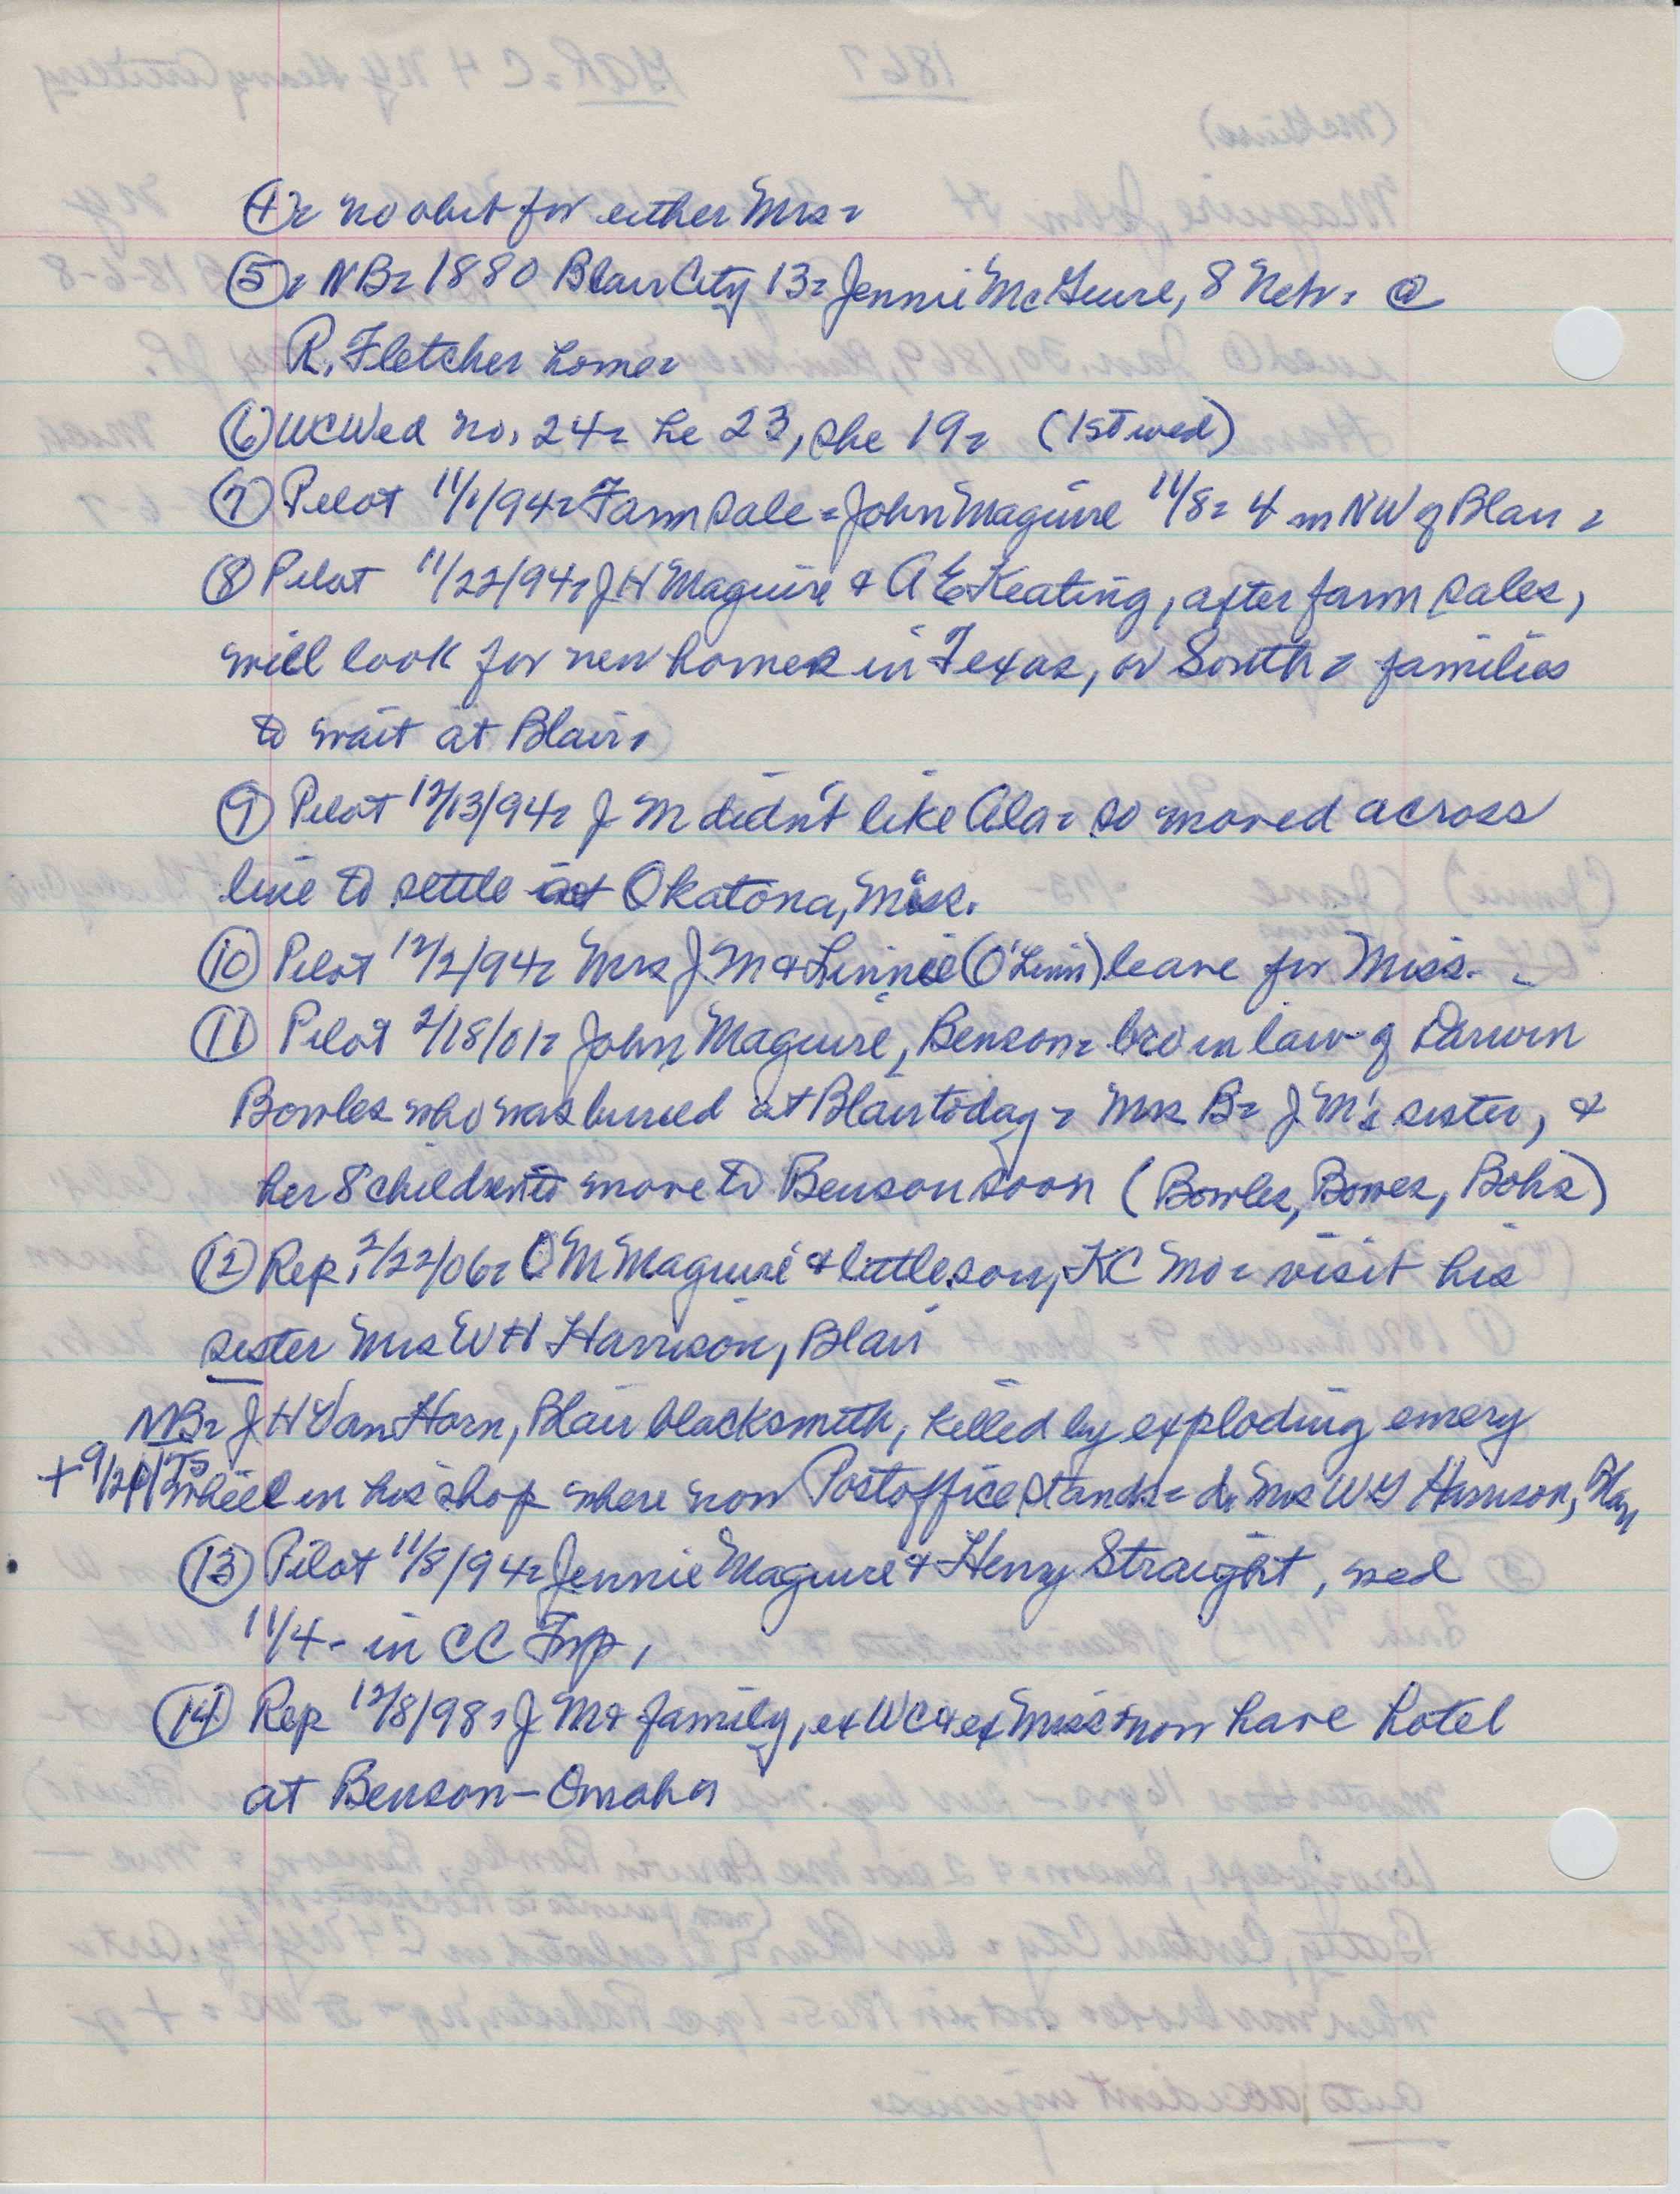 ④= no obit for either Mrs=
⑤= NB= 1880 Blair City 13= Jennie McGuire, 8 Neb= @
R. Fletcher home=
⑥ WCWed no. 24= he 23, she 19= (1st wed)
⑦ Pilot 11/1/94= Farm sale = John Maguire 11/8= 4 m NW of Blair =
⑧ Pilot 11/22/94= J H Maguire & A E Keating, after farm sales,
will look for new homes in Texas, or South = families
to wait at Blair=
⑨ Pilot 12/13/94= J M didn't like Ala= so moved across
line to settle at Okatona, Miss.
⑩ Pilot 12/2/94= Mrs J M & Linnie (O'Linn) leave for Miss. =
⑪ Pilot 2/18/01= John Maguire, Benson= bro in law of Darwin
Bowles who was buried at Blair today = Mrs B= J M's sister, &
her 8 children to move to Benson soon (Bowles, Bowes, Bohs)
⑫ Rep. 2/22/06= O M Maguire & little son, KC Mo= visit his
sister Mrs W H Harrison, Blair
NB= J H Van Horn, Blair blacksmith, killed by exploding emery
wheel in his shop where now Postoffice stands= d. Mrs W G Harrison, Blair
⑬ Pilot 11/8/94= Jennie Maguire & Henry Straight, wed
11/4- in CC Twp,
⑭ Rep 12/8/98= J M & family, ex WC & ex Miss= now have hotel
at Benson - Omaha